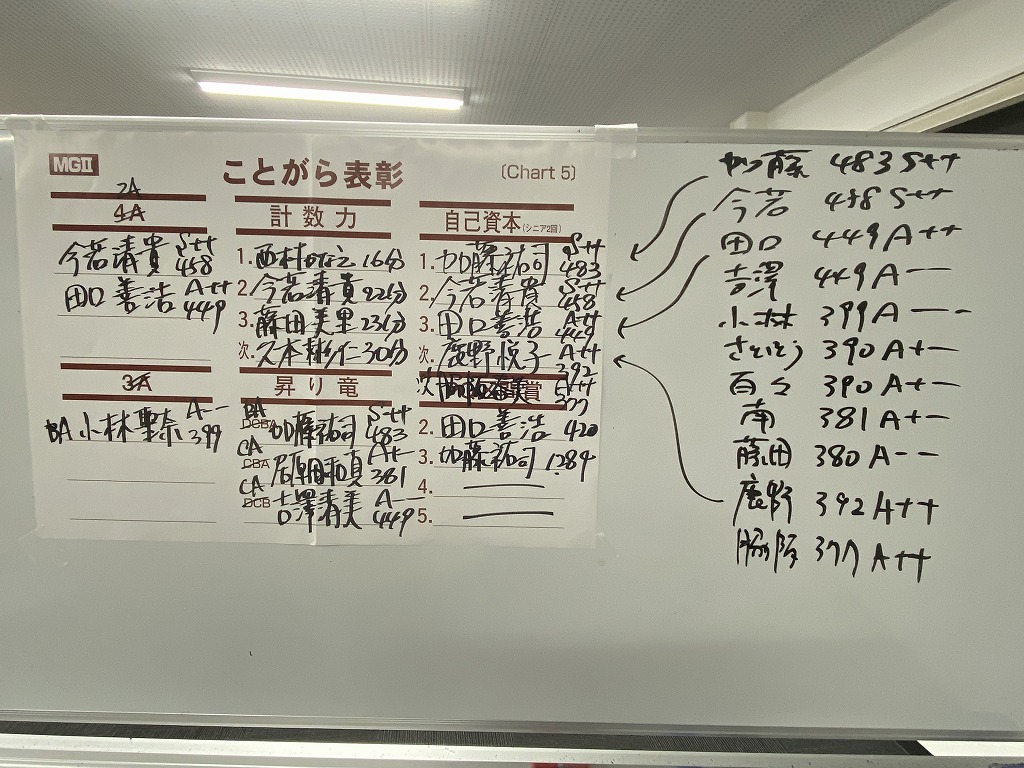 MGⅡ
ことがら表彰
(Chart 5)
2A
4A
今若清貴 S++ 458
田口善浩 A++ 449
3A
BA 小林聖奈 A-- 399
計数力
1. 西村 16分
2. 今若清貴 22分
3. 藤田美里 23分
次. 久本 仁 30分
昇り竜
BA
DCBA
加藤祐司 S++ 483
CA
CBA
南 A+- 381
CA
DCB
吉澤清美 A-- 449
自己資本(シニア2回)
1. 加藤祐司 S++ 483
2. 今若清貴 S++ 458
3. 田口善浩 A++ 449
次. 鹿野悦子 A++ 392
次 377
賞
2. 田口善浩 420
3. 加藤祐司 1284
4.
5.
加藤 483 S++
今若 458 S++
田口 449 A++
吉澤 449 A--
小林 399 A--
さいとう 390 A+-
百々 390 A+-
南 381 A+-
藤田 380 A--
鹿野 392 A++
脇阪 377 A++